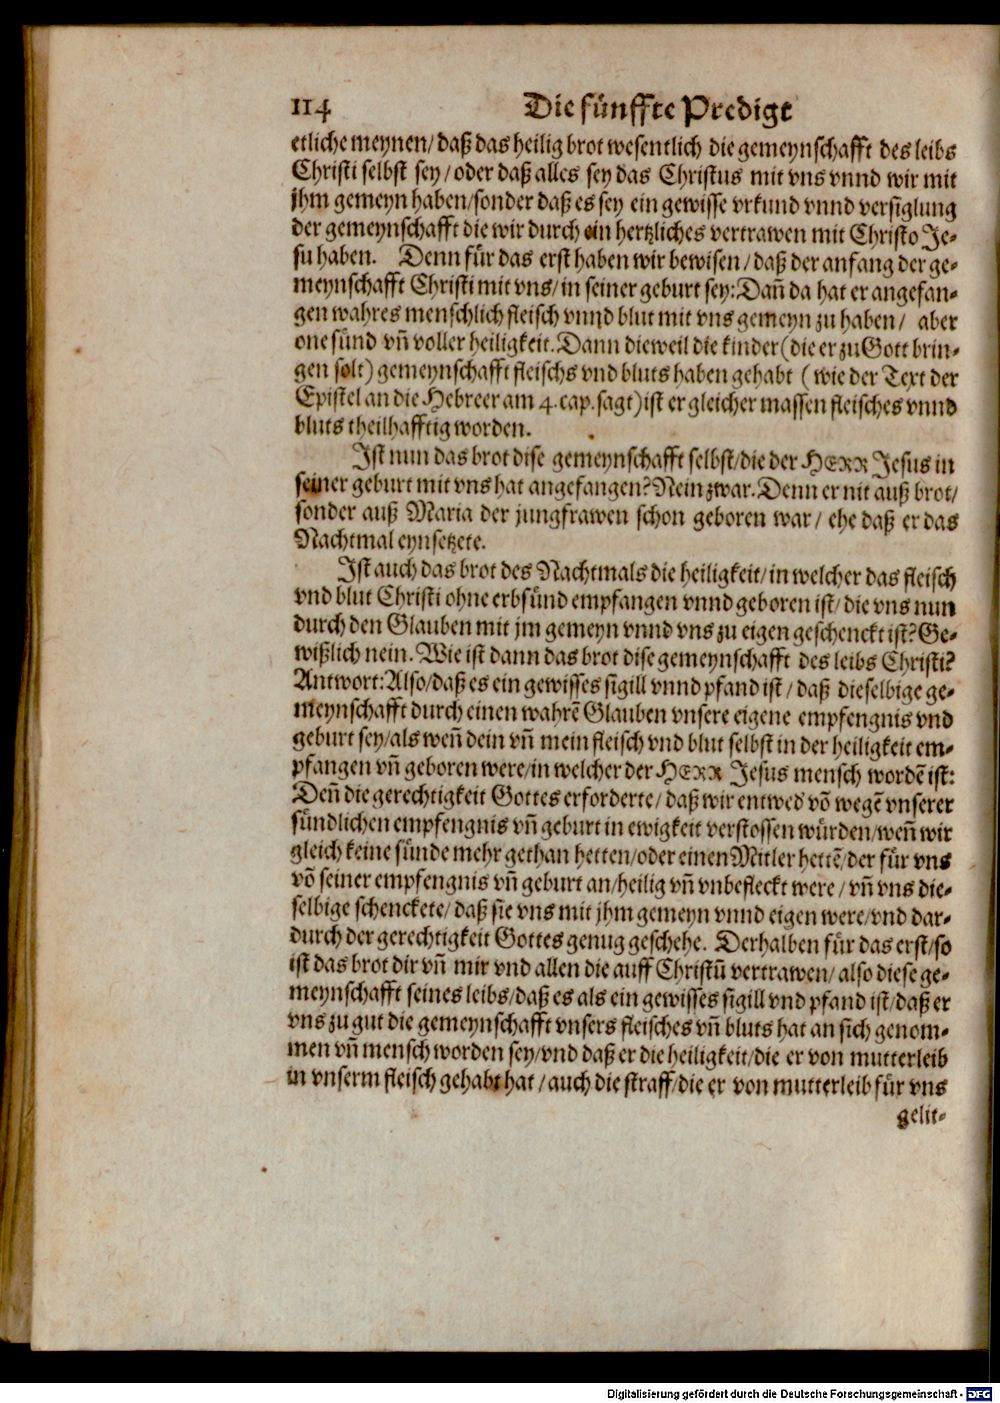 114 Die fünffte Predigt
etliche meynen/ daß das heilig brot wesentlich die gemeynschafft des leibs
Christi selbst sey/ oder daß alles sey das Christus mit vns vnnd wir mit
jhm gemeyn haben/ sonder daß es sey ein gewisse vrkund vnnd versiglung
der gemeynschafft die wir durch ein hertzliches vertrawen mit Christo Je-
su haben. Denn für das erst haben wir bewisen/ daß der anfang der ge-
meynschafft Christi mit vns/ in seiner geburt sey: Dañ da hat er angefan-
gen wahres menschlich fleisch vnnd blut mit vns gemeyn zu haben/ aber
one sünd vñ voller heiligkeit. Dann dieweil die kinder (die er zu Gott brin-
gen solt) gemeynschafft fleischs vnd bluts haben gehabt (wie der Text der
Epistel an die Hebreer am 4. cap. sagt) ist er gleicher massen fleisches vnnd
bluts theilhafftig worden.
Ist nun das brot dise gemeynschafft selbst/ die der HERR Jesus in
seiner geburt mit vns hat angefangen? Nein zwar. Denn er nit auß brot/
sonder auß Maria der jungfrawen schon geboren war/ ehe daß er das
Nachtmal eynsetzete.
Ist auch das brot des Nachtmals die heiligkeit/ in welcher das fleisch
vnd blut Christi ohne erbsünd empfangen vnnd geboren ist/ die vns nun
durch den Glauben mit jm gemeyn vnnd vns zu eigen geschenckt ist? Ge-
wißlich nein. Wie ist dann das brot dise gemeynschafft des leibs Christi?
Antwort: Also/ daß es ein gewisses sigill vnnd pfand ist/ daß dieselbige ge-
meynschafft durch einen wahrẽ Glauben vnsere eigene empfengnis vnd
geburt sey/ als weñ dein vñ mein fleisch vnd blut selbst in der heiligkeit em-
pfangen vñ geboren were/ in welcher der HERR Jesus mensch wordẽ ist:
Deñ die gerechtigkeit Gottes erforderte/ daß wir entwed' võ wegẽ vnserer
sündlichen empfengnis vñ geburt in ewigkeit verstossen würden/ weñ wir
gleich keine sünde mehr gethan hetten/ oder einen Mitler hettẽ/ der für vns
võ seiner empfengnis vñ geburt an/ heilig vñ vnbefleckt were/ vñ vns die-
selbige schenckete/ daß sie vns mit jhm gemeyn vnnd eigen were/ vnd dar-
durch der gerechtigkeit Gottes genug geschehe. Derhalben für das erst/ so
ist das brot dir vñ mir vnd allen die auff Christũ vertrawen/ also diese ge-
meynschafft seines leibs/ daß es als ein gewisses sigill vnd pfand ist/ daß er
vns zu gut die gemeynschafft vnsers fleisches vñ bluts hat an sich genom-
men vñ mensch worden sey/ vnd daß er die heiligkeit/ die er von mutterleib
in vnserm fleisch gehabt hat/ auch die straff/ die er von mutterleib für vns
gelit-
Digitalisierung gefördert durch die Deutsche Forschungsgemeinschaft - DFG